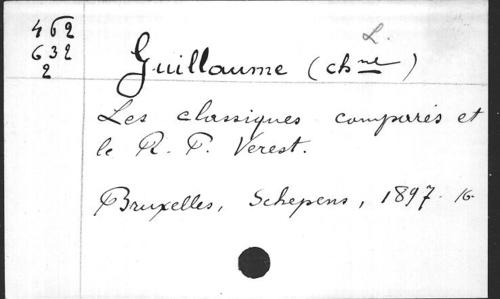 462
632
2
L.
Guillaume (chne)
Les classiques comparés et
le R. P. Verest.
Bruxelles, Schepens, 1897. 16.